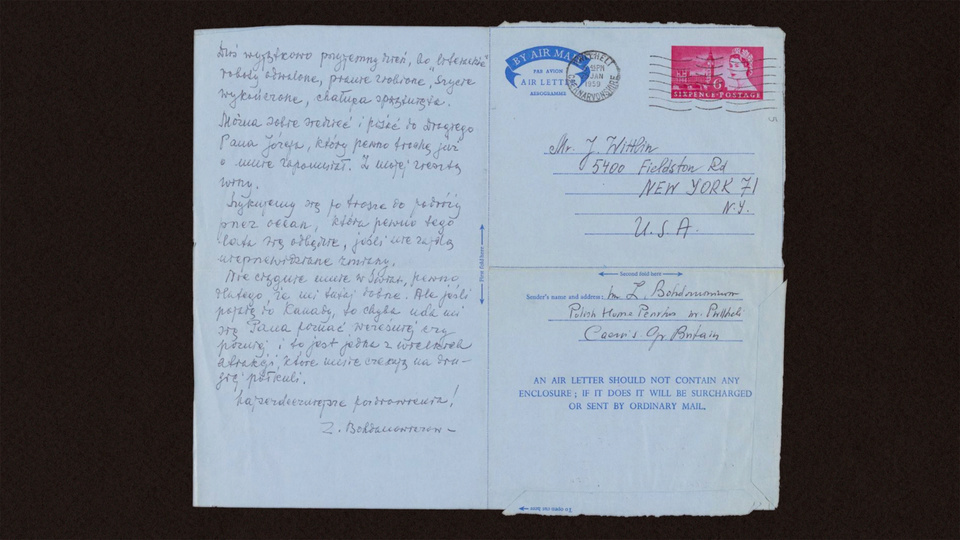 Dziś wyjątkowo przyjemny dzień, bo literackie
roboty odwalone, pranie zrobione, szycie
wykończone, chałupa sprzątnięta.
Można sobie siedzieć i pisać do Drogiego
Pana Józefa, który pewno trochę już
o mnie zapomniał. Z mojej zresztą
winy.
Szykujemy się po trosze do podróży
przez ocean, która pewno tego
lata się odbędzie, jeśli nie zajdą
nieprzewidziane zmiany.
Nie ciągnie mnie w świat, pewno
dlatego, że mi tutaj dobrze. Ale jeśli
pojadę do Kanady, to chyba uda mi
się Pana poznać wcześniej czy
później i to jest jedna z wielkich
atrakcji, które mnie czekają na dru-
giej półkuli.
Najserdeczniejsze pozdrowienia!
Z. Bohdanowiczowa
BY AIR MAIL
PAR AVION
AIR LETTER
AEROGRAMME
PWLLHELI
PM
JAN
1959
CAERNARVONSHIRE
6
SIXPENCE POSTAGE
5
Mr. J. Wittlin
5400 Fieldston Rd
NEW YORK 71
N.Y.
U.S.A.
First fold here
Second fold here
Sender's name and address: Z. Bohdanowiczowa
Polish Home Penrhos nr. Pwllheli
Caern's Gr. Britain
AN AIR LETTER SHOULD NOT CONTAIN ANY
ENCLOSURE; IF IT DOES IT WILL BE SURCHARGED
OR SENT BY ORDINARY MAIL.
To open cut here